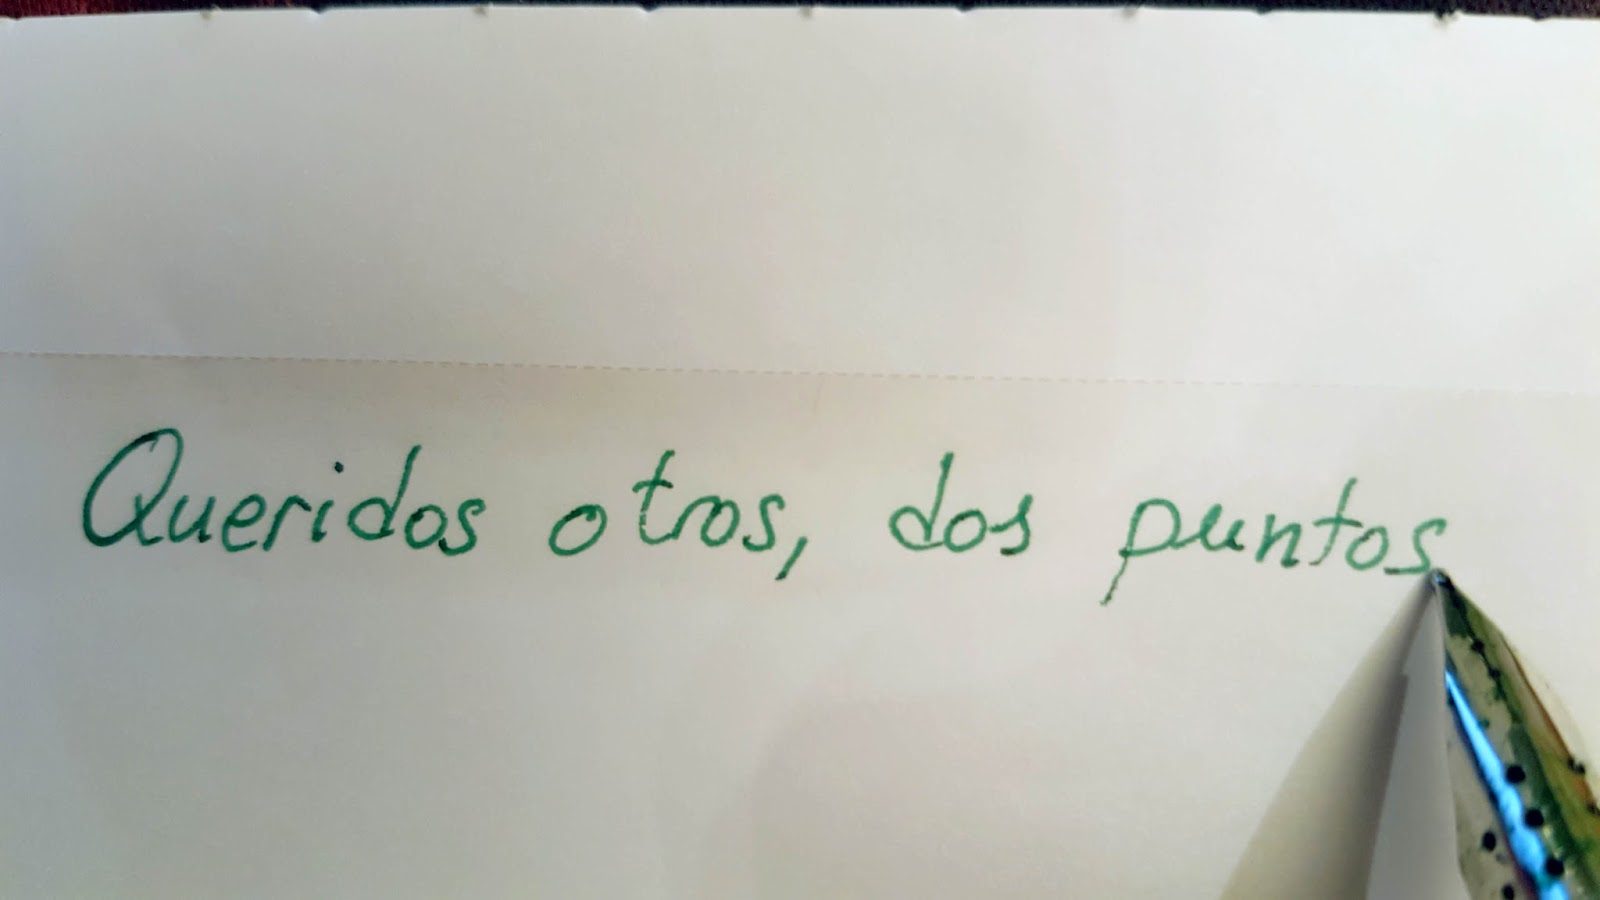 Queridos otros, dos puntos